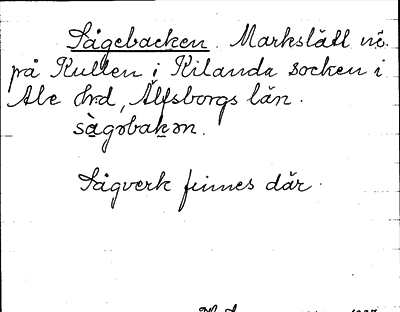 Sågebacken. Markslätt nö.
på Kullen i Kilanda socken i
Ale hrd, Älfsborgs län.
sågəbakən.
Sågverk finnes där.